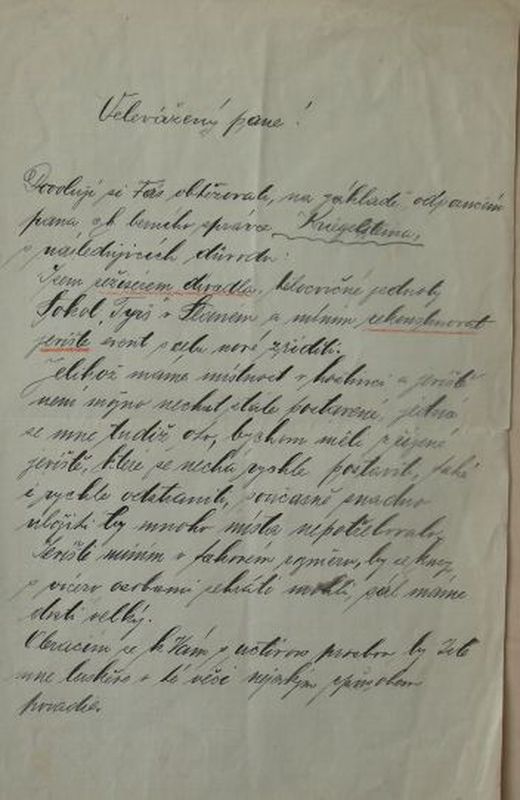 Velevážený pane!
Dovoluji si Vás obtěžovati, na základě odporučení
pana správce Kriegelsteina,
z následujících důvodů:
Jsem režisérem divadla, tělocvičné jednoty
Sokol, Tyrš v a míním rekonstruovat
jeviště event. zcela nové zříditi.
Jelikož máme místnost v hostinci a jeviště
není možno nechat stále postavené, jedná
se mne tudíž oto, bychom měli zřízené
jeviště, které se nechá rychle postavit, také
i rychle odstraniti, současně snadno
uložiti by mnoho místa nepotřebovalo.
Jeviště míním v takovém rozměru, by se kusy
s více osobami sehráti mohli, sál máme
dosti velký.
Obracím se k Vám s uctivou prosbou by Jste
mne laskavě v té věci nějakým způsobem
poradil.